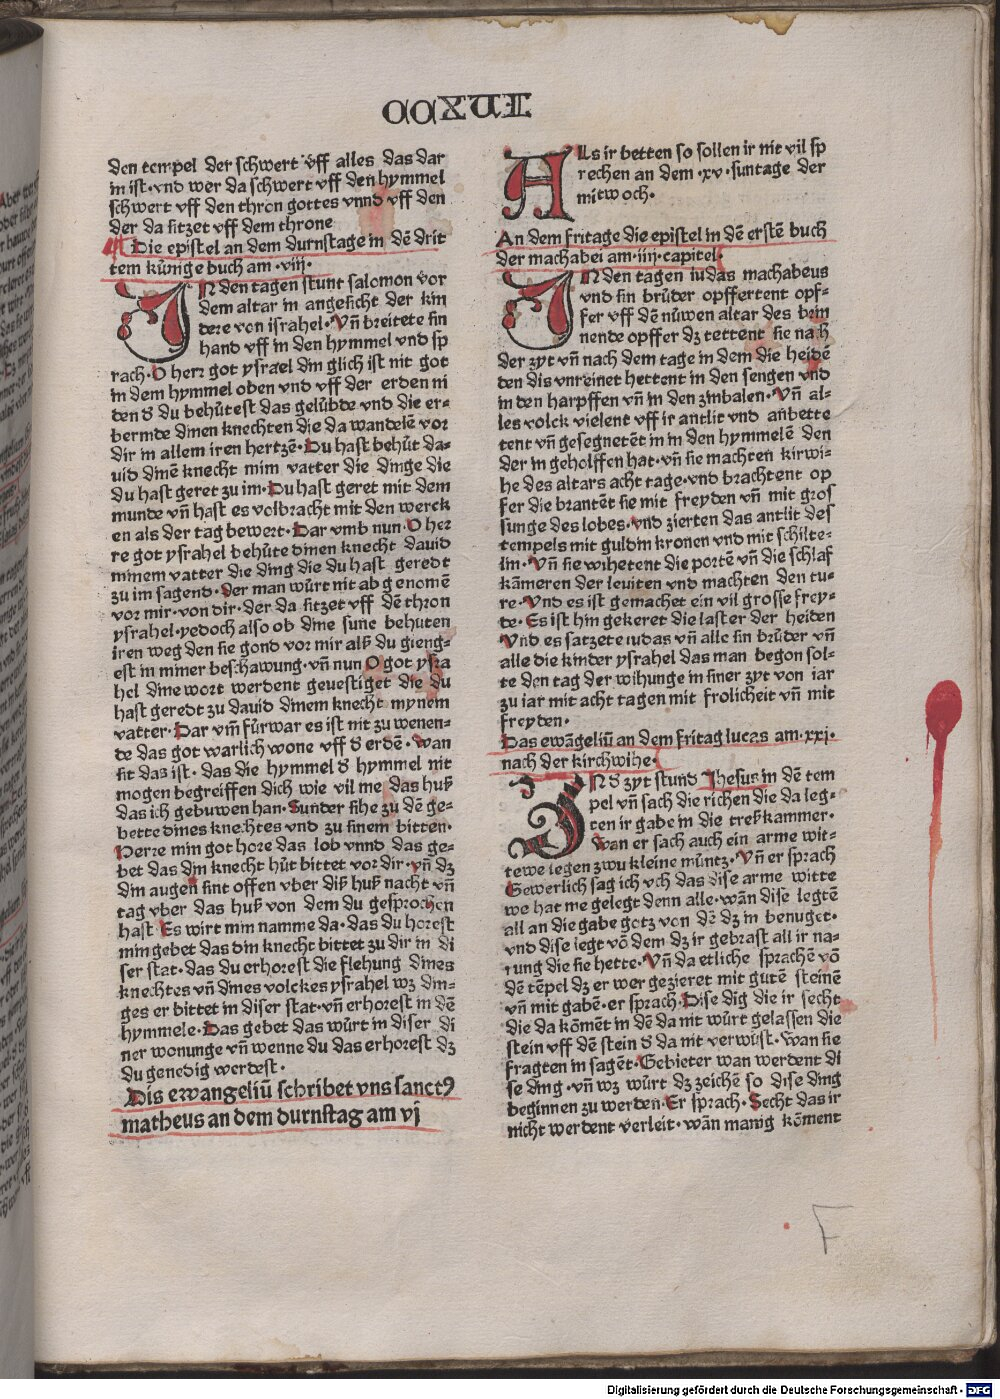 CCXVI
den tempel der schwert vff alles das dar
in ist · vnd wer da schwert vff den hymmel
schwert vff den thron gottes vnnd vff den
der da sitzet vff dem throne
Die epistel an dem durnstage in dē drit
tem künige buch am · viij ·
IN den tagen stunt salomon vor
dem altar in angesicht der kin
dere von israhel · Vn̄ breitete sin
hand vff in den hymmel vnd sp
rach · O herr got ysrael din glich ist nit got
in dem hymmel oben vnd vff der erden ni
den d du behütest das gelübde vnd die er=
bermde dinen knechten die da wandelē vor
dir in allem iren hertzē · Du hast behüt da=
uid dinē knecht mim vatter die dinge die
du hast geret zu im · Du hast geret mit dem
munde vn̄ hast es volbracht mit den werck
en als der tag bewert · Dar vmb nun · O her
re got ysrahel behüte dinen knecht dauid
minem vatter die ding die du hast geredt
zu im sagend · Der man würt nit ab genomē
vor mir · von dir · der da sitzet vff dē thron
ysrahel · yedoch also ob dine sune behuten
iren weg den sie gond vor mir alß du gieng=
est in miner beschawung · vn̄ nun O got ysra
hel dine wort werdent geuestiget die du
hast geredt zu dauid dinem knecht mynem
vatter · Dar vm̄ fürwar es ist nit zu wenen=
de das got warlich wone vff d erdē · Wan
sit das ist · das die hymmel d hymmel nit
mogen begreiffen dich wie vil me das huß
das ich gebuwen han · Sunder sihe zu dē ge=
bette dines knechtes vnd zu sinem bitten ·
Herre min got hore das lob vnnd das ge=
bet das din knecht hüt bittet vor dir · vn̄ dz
din augen sint offen vber diß huß nacht vn̄
tag vber das huß von dem du gesprochen
hast Es wirt min namme da · das du horest
min gebet das din knecht bittet zu dir in di
ser stat · das du erhorest die flehung dines
knechtes vn̄ dines volckes ysrahel wz din=
ges er bittet in diser stat · vn̄ erhorest in dē
hymmele · Das gebet das würt in diser di
ner wonunge vn̄ wenne du das erhorest dz
du genedig werdest ·
Dis ewangeliū schribet vns sanctꝰ
matheus an dem durnstag am vj
ALs ir betten so sollen ir nit vil sp
rechen an dem · xv · suntage der
mitwoch ·
An dem fritage die epistel in dē erstē buch
der machabei am · iiij · capitel ·
IN den tagen iudas machabeus
vnd sin brüder opffertent opf=
fer vff dē nüwen altar des brin
nende opffer dz tettent sie nah
der zyt vn̄ nach dem tage in dem die heidē
den dis vnreinet hettent in den sengen vnd
in den harpffen vn̄ in den zimbalen · Vn̄ al=
les volck vielent vff ir antlit vnd anbette
tent vn̄ gesegnetēt in in den hymmelē den
der in geholffen hat · vn̄ sie machten kirwi=
he des altars acht tage · vnd brachtent op
fer die brantēt sie mit freyden vn̄ mit gros
sunge des lobes · vnd zierten das antlit des
tempels mit guldin kronen vnd mit schilte=
lin · Vn̄ sie wihetent die portē vn̄ die schlaf
kāmeren der leuiten vnd machten den tu=
re · Vnd es ist gemachet ein vil grosse frey=
de · Es ist hin gekeret die laster der heiden
Vnd es satzete iudas vn̄ alle sin brüder vn̄
alle die kinder ysrahel das man begon sol=
te den tag der wihunge in siner zyt von iar
zu iar mit acht tagen mit frolicheit vn̄ mit
freyden ·
Das ewāgeliū an dem fritag lucas am · xxj ·
nach der kirchwihe ·
IN d zyt stund Jhesus in dē tem
pel vn̄ sach die richen die da leg=
ten ir gabe in die treßkammer ·
Wan er sach auch ein arme wit=
tewe legen zwu kleine müntz · Vn̄ er sprach
Gewerlich sag ich vch das dise arme witte
we hat me gelegt denn alle · wān dise legtē
all an die gabe gotz von dē dz in benuget ·
vnd dise legt vō dem dz ir gebrast all ir na=
rung die sie hette · Vn̄ da etliche sprachē vō
dē tēpel dz er wer gezieret mit gutē steinē
vn̄ mit gabē · er sprach · Dise dig die ir secht
die da kōmēt in dē da nit würt gelassen die
stein vff dē stein d da nit verwüst · Wan sie
fragten in sagēt · Gebieter wan werdent di
se ding · vn̄ wz würt dz zeichē so dise ding
beginnen zu werden · Er sprach · Secht das ir
nicht werdent verleit · wān manig kōment
F
Digitalisierung gefördert durch die Deutsche Forschungsgemeinschaft - DFG